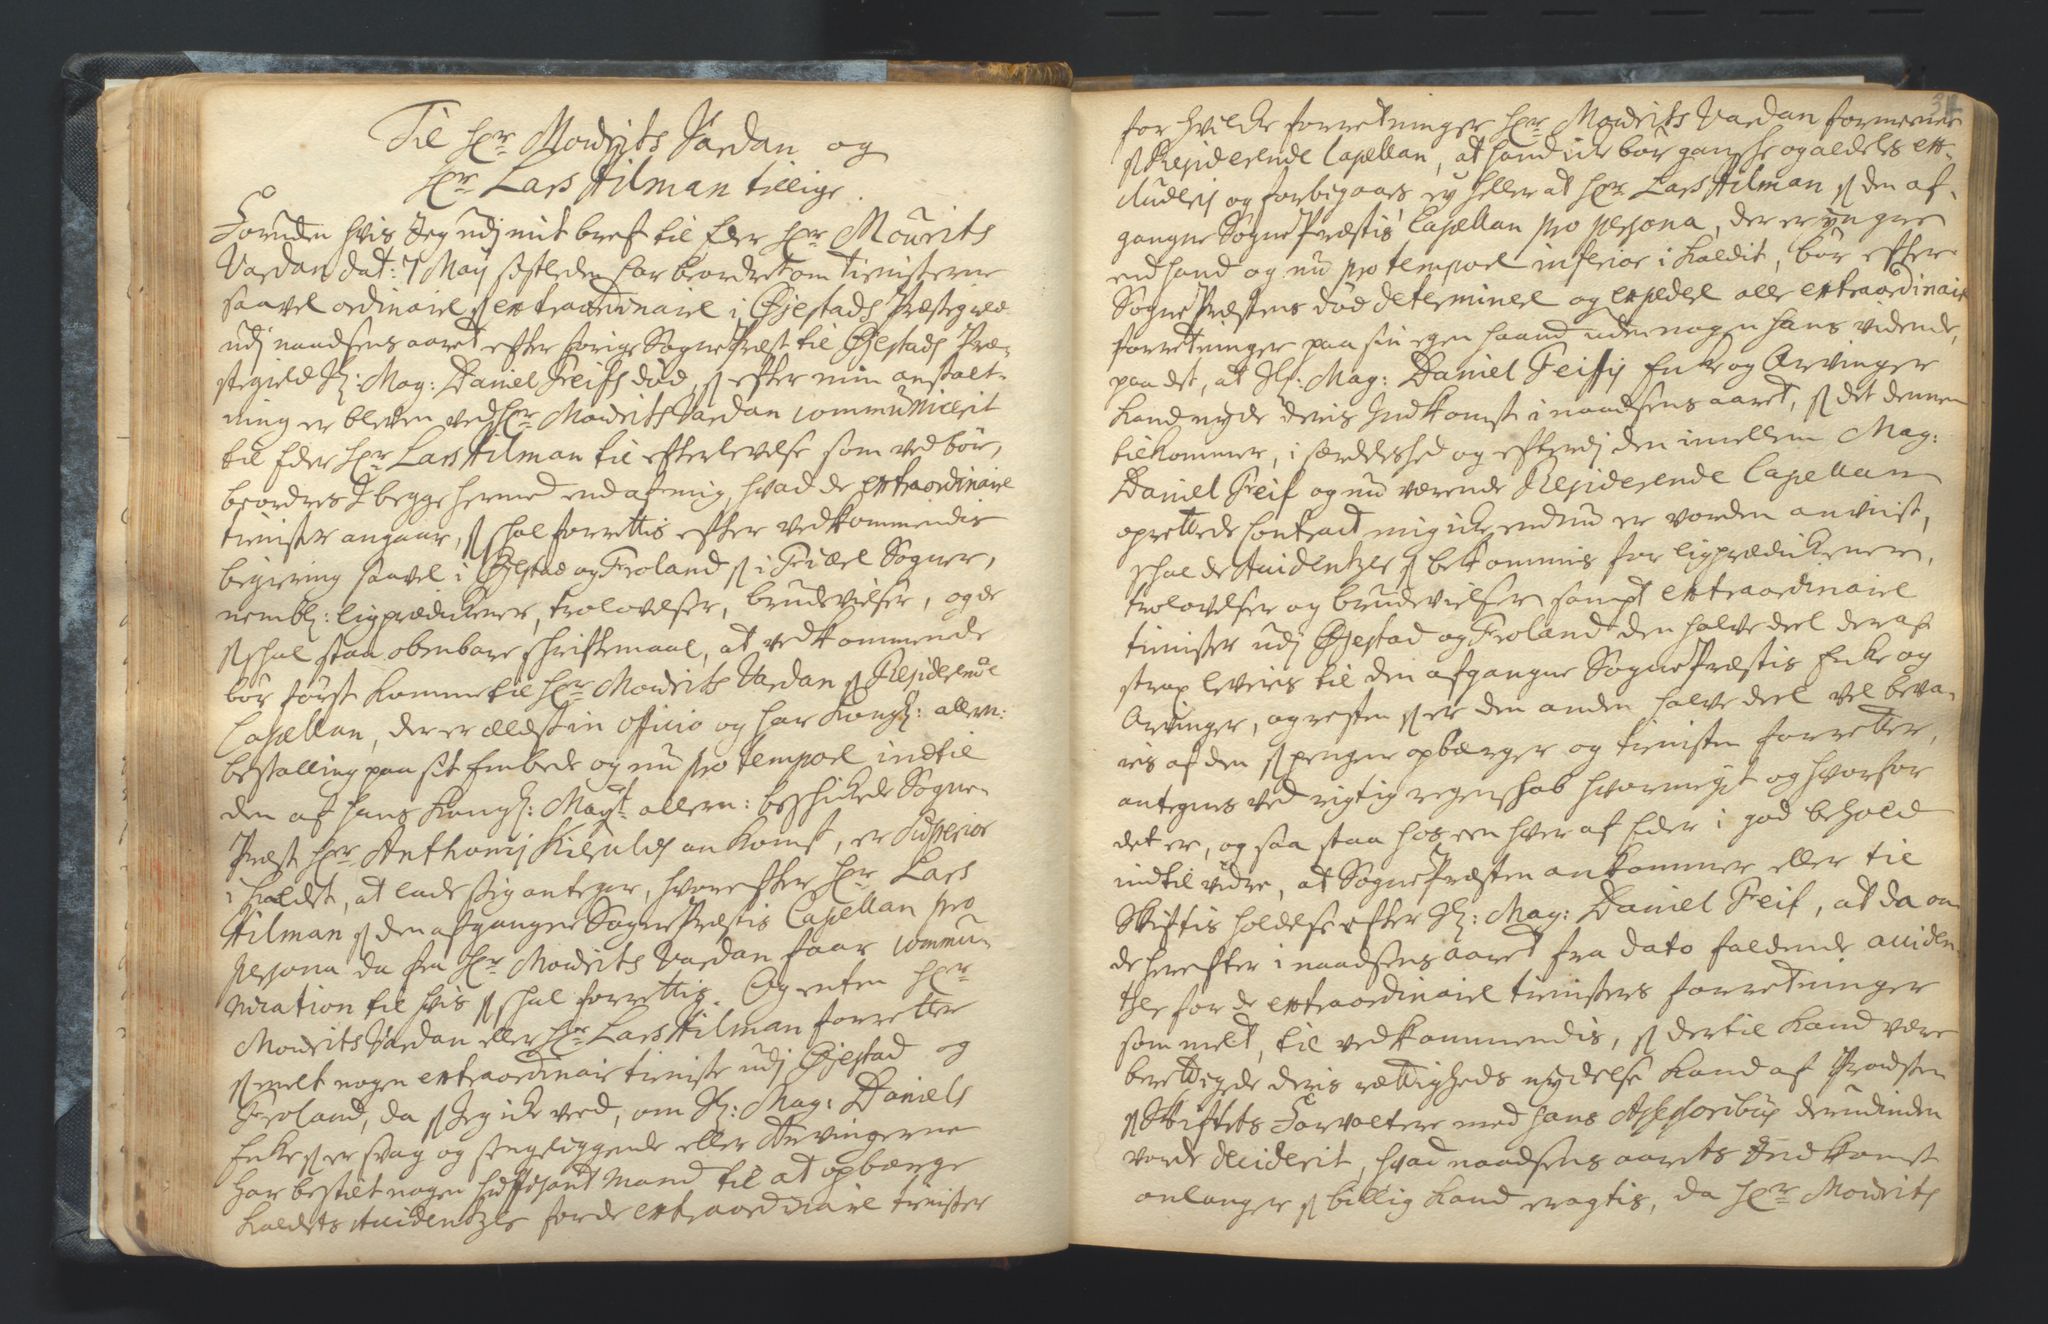 Til Hr Mowrits Vardan og
Hr Lars Hilman tillige.
Foruden hvis Jeg udj mit bref til Eder Hr Mowrits
Vardan dat: 7 Maij sistleden har beordret om tienisterne
saavel ordinaire s extraordinaire i Øjestads Præstegield
udj naadsens aaret efter forige SognePræst til Øjestads Præ-
stegield Sl: Mag: Daniel Freifs död, s efter min anstalt-
ning er bleven ved Hr Mowrits Vardan communicerit
til Eder Hr Lars Hilman til efterlevelse som ved bör,
beordres I begge hermed end af mig, hvad de extraordinaire
tienister angaar, s skal forrettis efter vedkommendis
begiering saavel i Øjestad og Froland s i Friæl Sogner,
nembl: ligprædikener, trolovelser, brudevielser, og de
s skal staa obenbare skriftemaal, at vedkommende
bör först komme til Hr Mowrits Vardan s Residerende
Capellan, der er ældst in officio og har Kongl: allern:
bestalling paa sit Embede og nu pro tempore indtil
den af Hans Kongl: Mayt: allern: beskickede Sogne-
Præst Hr Anthonij ankomst, er Superior
i Kaldet, at lade sig antegne, hvorefter Hr Lars
Hilman s den afgangne SognePræstis Capellan pro
persona da fra Hr Mowrits Vardan faar commu-
nication til hvis s skal forrettis. Og enten Hr
Mowrits Vardan eller Hr Lars Hilman forretter
s melt nogen extraordinair tieniste udj Øjestad og
Froland, da s Jeg icke ved, om Sl: Mag: Daniels
Enke s er svag og sengeliggende eller Arvingerne
har bestilt nogen suffisant Mand til at opbærge
Kaldets Accidentzer for de extraordinaire tienister
34
for hvilcke forretninger Hr Mowrits Vardan formener
s Residerende Capellan, at hand icke bör gandske og aldeles ex-
cluderis og forbigaaes, ey heller at Hr Lars Hilman s den af-
gangne SognePræstis Capellan pro persona, der er yngre
end hand og nu pro tempore inferior i Kaldet, bör efter
SognePræstens död determinere og expedere alle extraordinaire
forretninger paa sin egen haand uden nogen hans vidende,
paa det, at Sl: Mag: Daniel Freifs Enke og Arvinger
kand nyde deris Indkomst i naadsens aaret, s det dennem
tilkommer, i særdeleshed og efterdj den imellem Mag:
Daniel Freif og nu værende Residerende Capellan
oprettede Contract mig icke endnu er vorden anviist,
skal de Accidentzer s bekommis for ligprædickener,
trolovelser og brudevielser sampt extraordinaire
tienister udj Øjestad og Froland den halve deel deraf
strax leveris til den afgangne SognePræstis Enke og
Arvinger, og resten s er den anden halve deel vel beva-
ris af den s pengene opbærger og tienisten forretter,
antegnes ved rigtig regenskab hvormeget og hvorfor
det er, og saa staa hos een hver af Eder i god behold
indtil vidre, at SognePræsten ankommer eller til
Skiftis holdelse efter Sl: Mag: Daniel Freif, at da om
de herefter i naadsens aaret fra dato faldende acciden-
tzer for de extraordinaire tienisters forretninger
som melt, til vedkommendis, s dertil kand være
berettigede deris rættigheds nydelse kand af Prousten
s Skiftets Forvaltere med hans Assessoribus derudinden
vorde decidirit, hvad naadsens aarets Indkomst
anlanger s billig kand eragtis, da Hr Mowrits